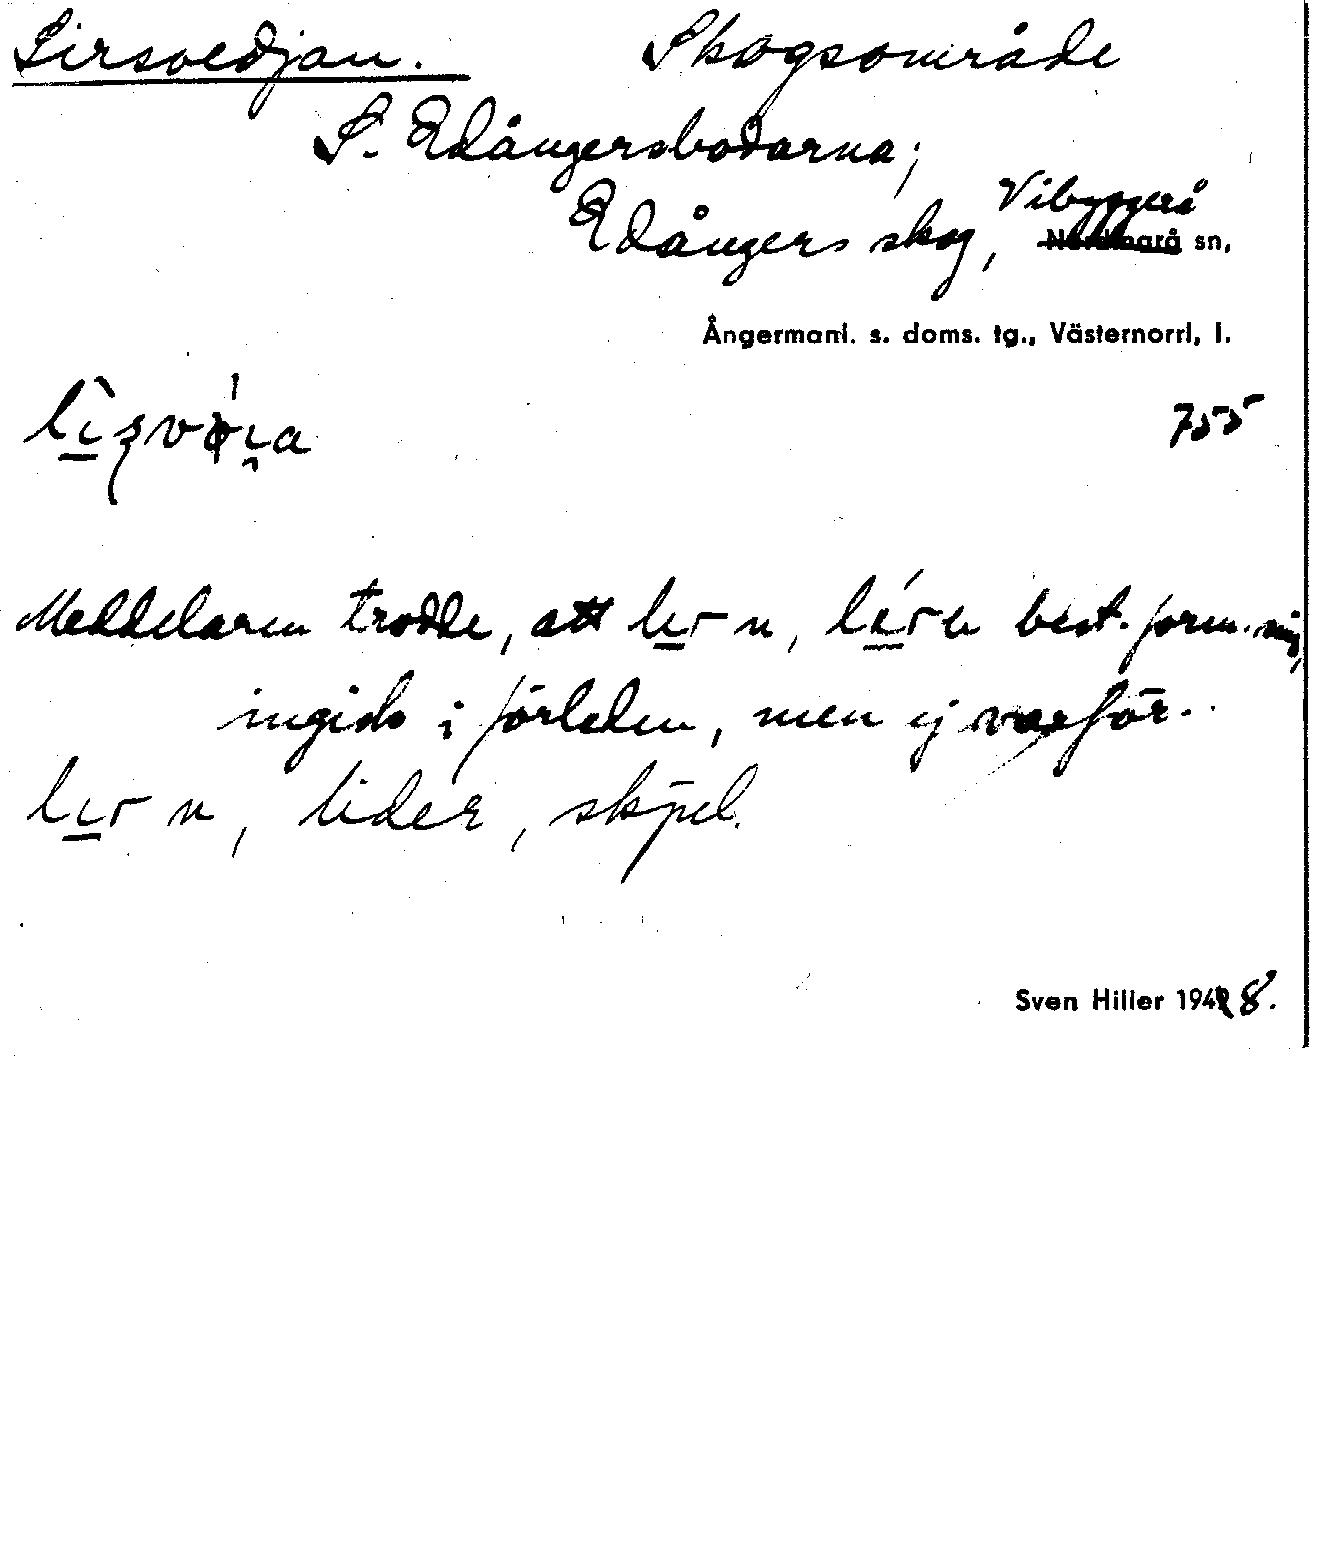 Lirsvedjan. Skogsområde
S. Edångersbodarna;
Edångers skog, Vibyggerå
Nordingrå sn,
Ångermanl. s. doms. tg., Västernorrl. l.
755
Meddelaren trodde, att lir n, lira best. form. sing,
ingick i förleden, men ej varför.
lir n, lider, skjul.
Sven Hiller 1948.